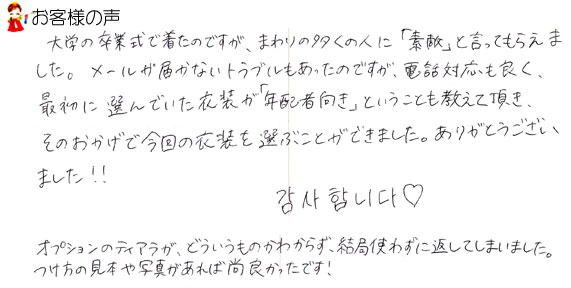 お客様の声
大学の卒業式で着たのですが、まわりの多くの人に「素敵」と言ってもらえま
した。メールが届かないトラブルもあったのですが、電話対応も良く、
最初に選んでいた衣装が「年配者向き」ということも教えて頂き、
そのおかげで今回の衣装を選ぶことができました。ありがとうござい
ました!!
감사합니다♡
オプションのティアラが、どういうものかわからず、結局使わずに返してしまいました。
つけ方の見本や写真があれば尚良かったです!